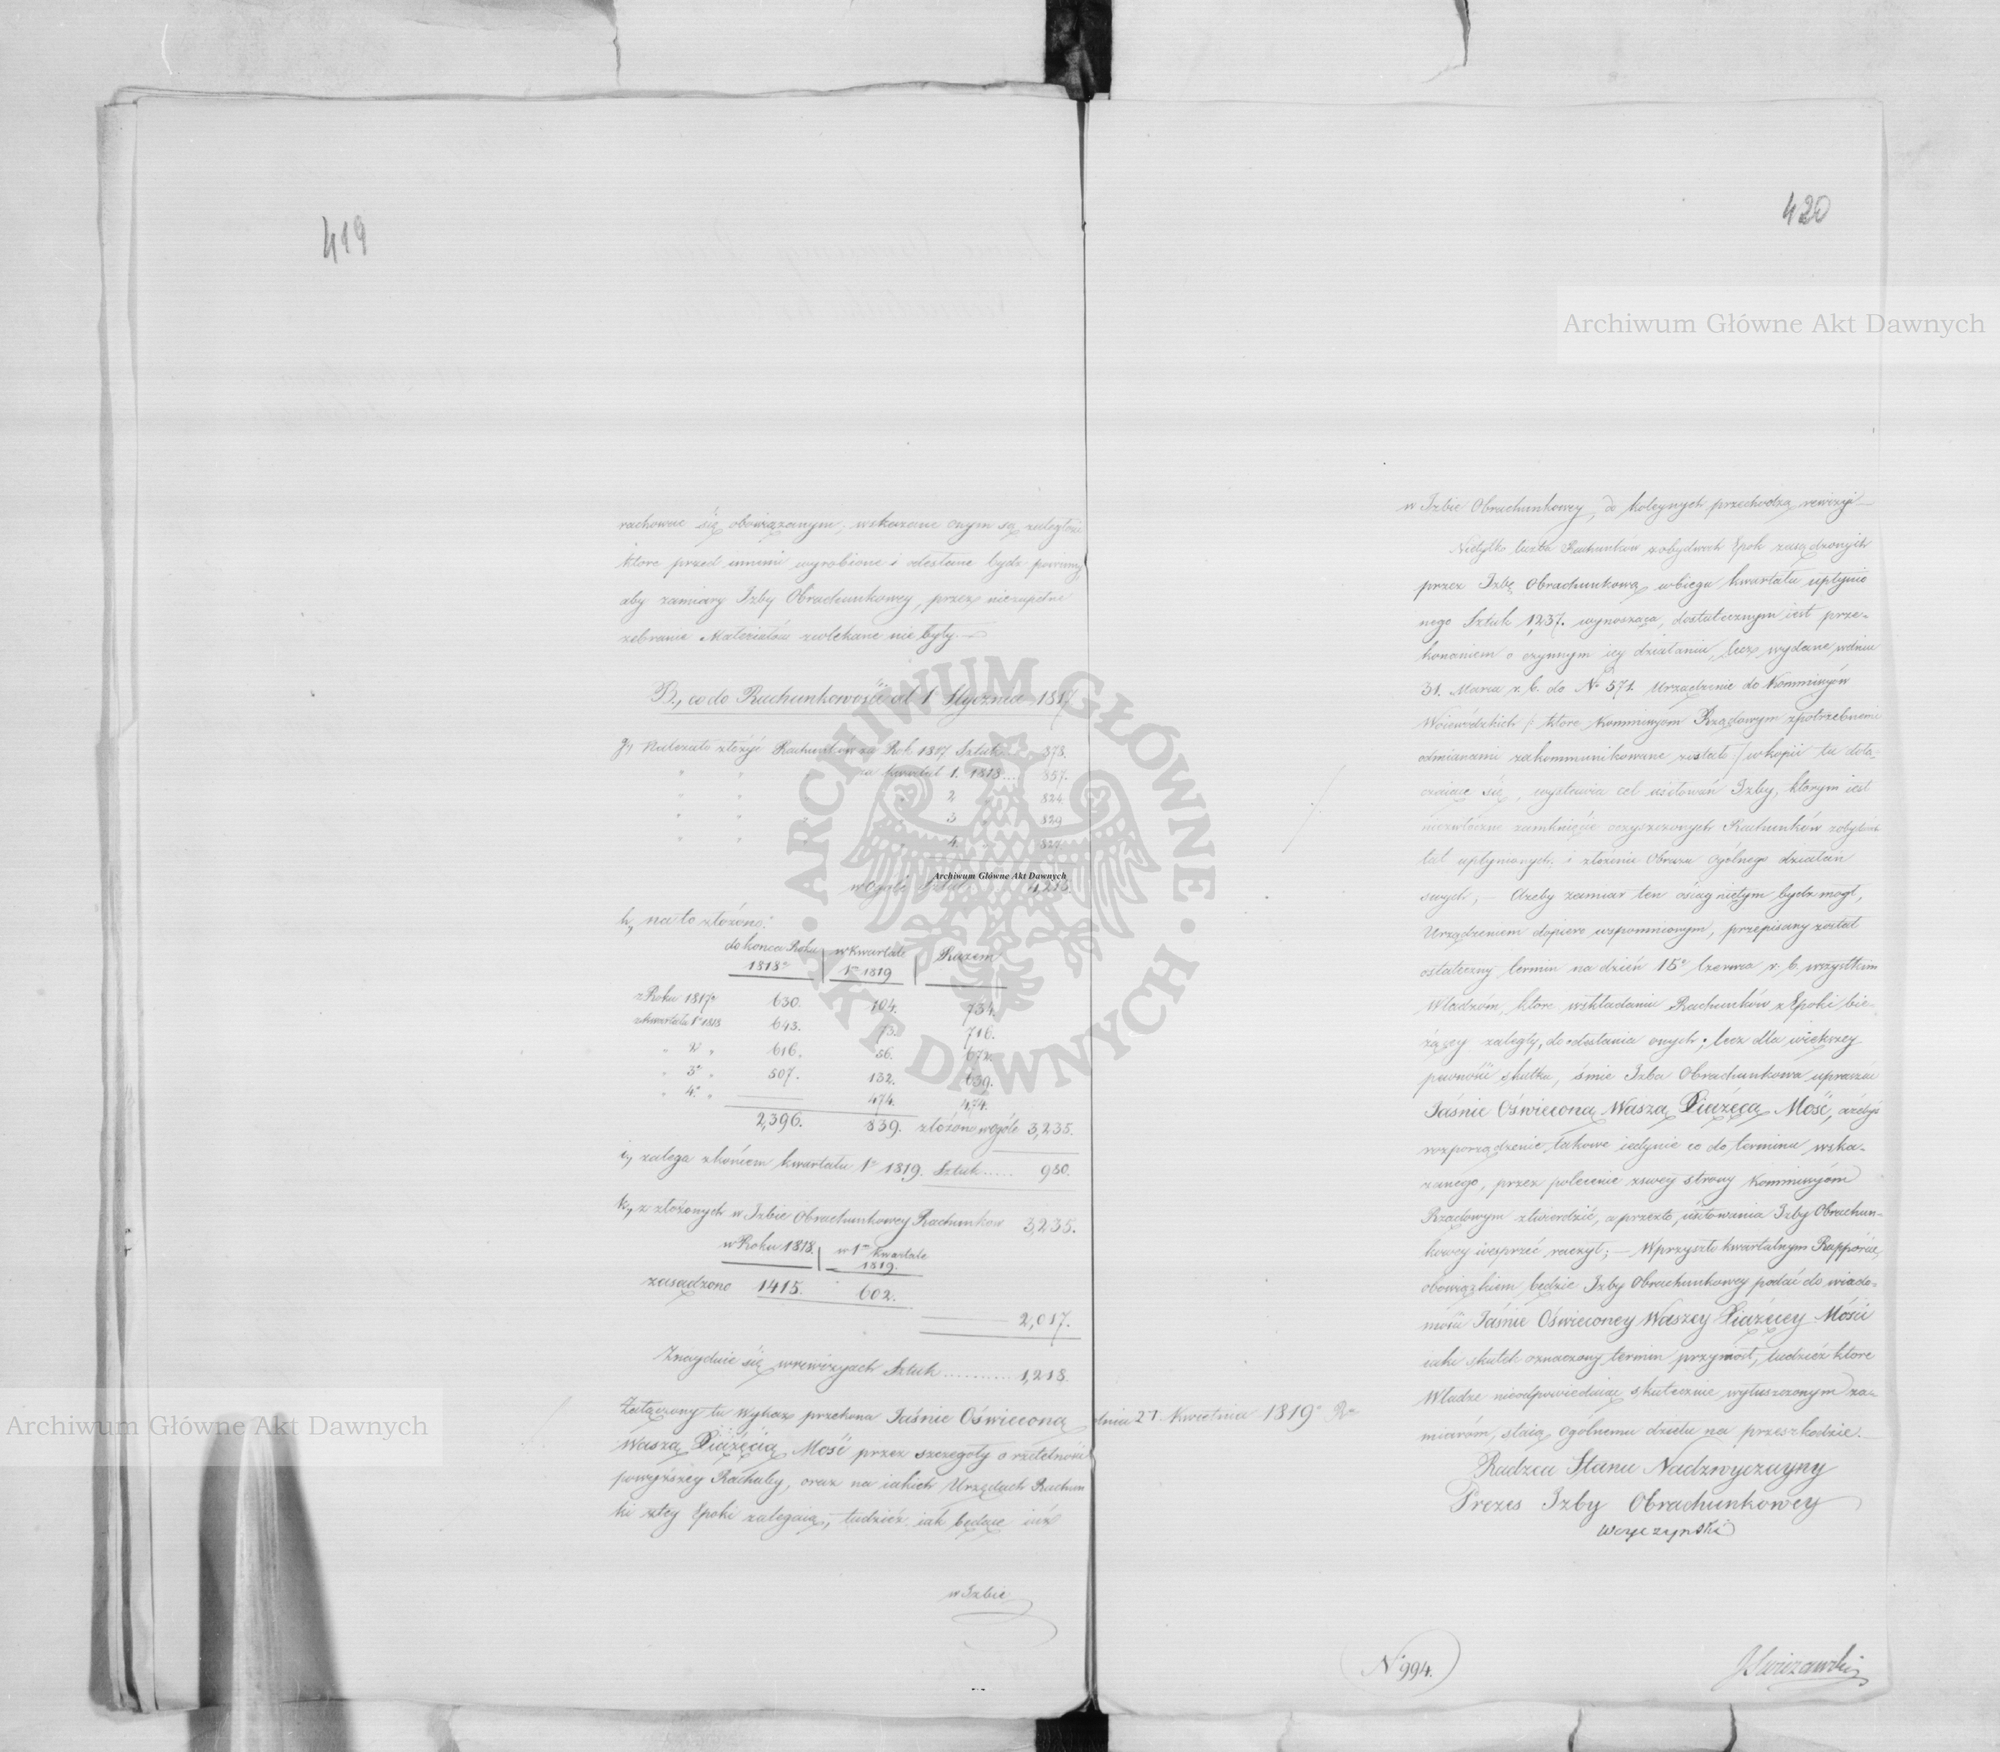 419
rachować się obowiązanym, wskazane onym są zaległości
które przed innemi wyrobione i odesłane bydź powinny
aby zamiary Izby Obrachunkowey, przez niezupełne
zebranie Materiałów zwlekane nie były. —
B., co do Rachunkowości od 1 Stycznia 1817
g, Należało złożyć Rachunków za Rok 1817 Sztuk 878.
" " " za kwartał 1. 1818.... 857.
" " " 2 " 824
" " " 3 " 829
" " " 4. " 827.
w Ogóle Sztuk 4,215.
h, na to złożono:
do końca Roku 1818º | w kwartale 1m 1819 | Razem
z Roku 1817º 630. 104. 734.
z kwartału 1º 1818 643. 73. 716.
" 2 " 616. 56. 672.
" 3º " 507. 132. 639.
" 4º " — 474. 474.
2,396. 839. złożono w ogóle 3,235.
i, zalega z końcem kwartału 1º 1819. Sztuk..... 980.
k, z złożonych w Izbie Obrachunkowey Rachunków 3,235.
w Roku 1818. | w 1m kwartale 1819.
zasądzono 1415. 602.
2,017.
Znayduie się w rewizyach Sztuk ........... 1,218.
Załączony tu Wykaz przekona Jaśnie Oświeconą
Waszą Xiążęcią Mość przez szczegóły o rzetelności
powyższey Rachuby, oraz na iakich Urzędach Rachun
ki z tey Epoki zalegaią, tudzież iak będące iuż
w Izbie
420
w Izbie Obrachunkowey, do koleynych przechodzą rewizyi —
Nietylko liczba Rachunków z obydwóch Epok zasądzonych
przez Izbę Obrachunkową w biegu kwartału upłynio
nego Sztuk 1,237. wynosząca, dostatecznym iest prze-
konaniem o czynnym iey działaniu, lecz wydane w dniu
31. Marca r. b. do Nº 571 Urządzenie do Kommissyów
Woiewódzkich /: które Kommissyom Rządowym z potrzebnemi
odmianami zakommunikowane zostało :/ w kopii tu dołą-
czaiące się, wystawia cel usiłowań Izby, którym iest
niezwłoczne zamknięcie oczyszczonych Rachunków z obydwóch
lat upłynionych i złożenie Obrazu ogólnego działań
swych; — Ażeby zamiar ten osiągniętym bydź mógł,
Urządzeniem dopiero wspomnionym, przepisany został
ostateczny termin na dzień 15º Czerwca r. b. wszystkim
Władzom, które w składaniu Rachunków z Epoki bie-
żącey zaległy, do odesłania onych; lecz dla większey
pewności skutku, śmie Izba Obrachunkowa upraszać
Jaśnie Oświeconą Waszą Xiążęcą Mość, ażebyś
rozporządzenie takowe iedynie co do terminu wska-
zanego, przez polecenie z swey strony Kommissyom
Rządowym stwierdzić, a przezto, usiłowania Izby Obrachun-
kowey wesprzeć raczył; — W przyszło kwartalnym Rapporcie,
obowiązkiem będzie Izby Obrachunkowey podać do wiado-
mości Jaśnie Oświeconey Waszey Xiążęcey Mości
iaki skutek oznaczony termin przyniósł, tudzież które
Władze nieodpowiedaiąc skutecznie wyłuszczonym za-
miarom, staią ogólnemu dziełu na przeszkodzie. —
dnia 27 Kwietnia 1819º Rº
Radzca Stanu Nadzwyczayny
Prezes Izby Obrachunkowey
Nº 994.
Archiwum Główne Akt Dawnych
Archiwum Główne Akt Dawnych
Archiwum Główne Akt Dawnych
ARCHIWUM GŁÓWNE AKT DAWNYCH